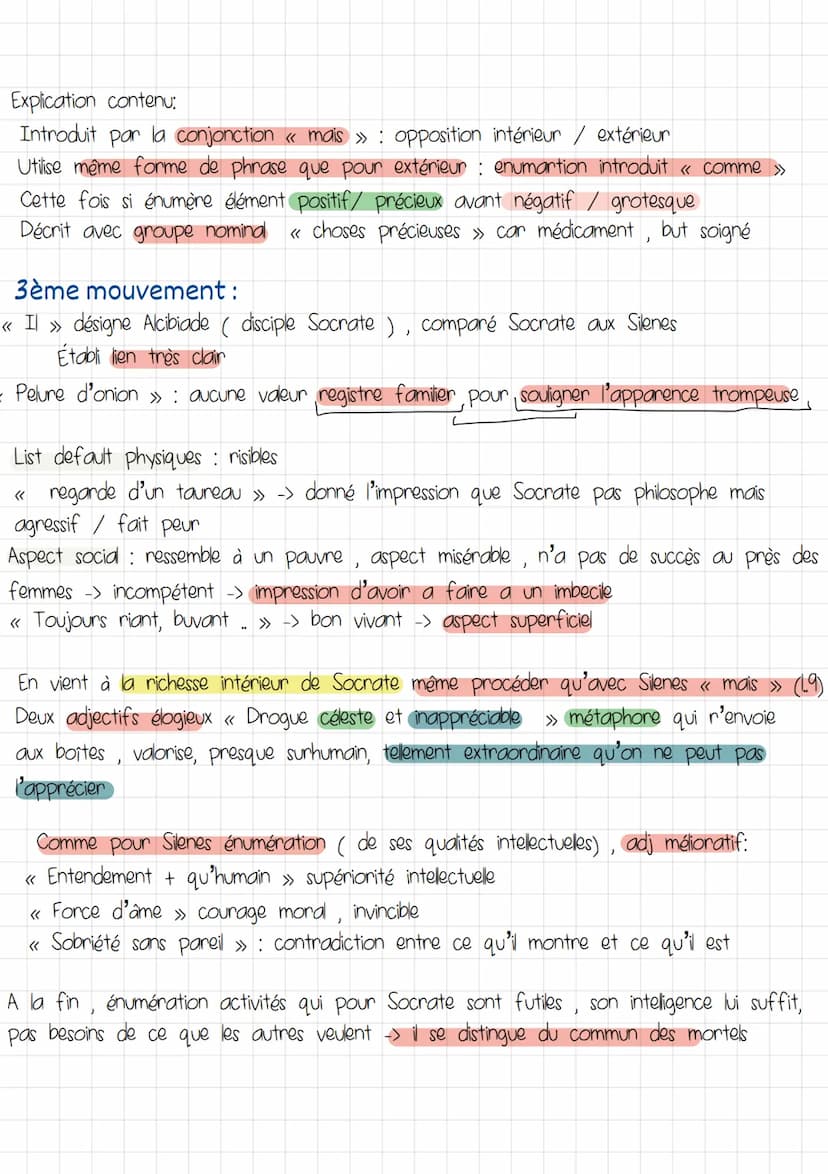 Explication contenu:
Introduit par la conjonction « mais » : opposition intérieur / extérieur
Utilise même forme de phrase que pour extérieur : enumartion introduit « comme »
Cette fois si énumère élément positif/ précieux avant négatif / grotesque
Décrit avec groupe nominal « choses précieuses » car médicament , but soigné
3ème mouvement :
« Il » désigne Alcibiade ( disciple Socrate ) , comparé Socrate aux Silenes
Établi lien très clair
« Pelure d'onion » : aucune valeur registre familier pour souligner l'apparence trompeuse
List default physiques : risibles
« regarde d'un taureau » -> donné l'impression que Socrate pas philosophe mais
agressif / fait peur
Aspect social : ressemble à un pauvre , aspect misérable , n'a pas de succès au près des
femmes -> incompétent -> impression d'avoir a faire a un imbecile
« Toujours riant, buvant .. » -> bon vivant -> aspect superficiel
En vient à la richesse intérieur de Socrate même procéder qu'avec Silenes « mais » (L9)
Deux adjectifs élogieux « Drogue céleste et inappréciable » métaphore qui r'envoie
aux boîtes , valorise, presque surhumain, tellement extraordinaire qu'on ne peut pas
l'apprécier
Comme pour Silenes énumération ( de ses qualités intellectuelles) , adj mélioratif:
« Entendement + qu'humain » supériorité intellectuelle
« Force d'âme » courage moral , invincible
« Sobriété sans pareil » : contradiction entre ce qu'il montre et ce qu'il est
A la fin , énumération activités qui pour Socrate sont futiles , son inteligence lui suffit,
pas besoins de ce que les autres veulent -> il se distingue du commun des mortels